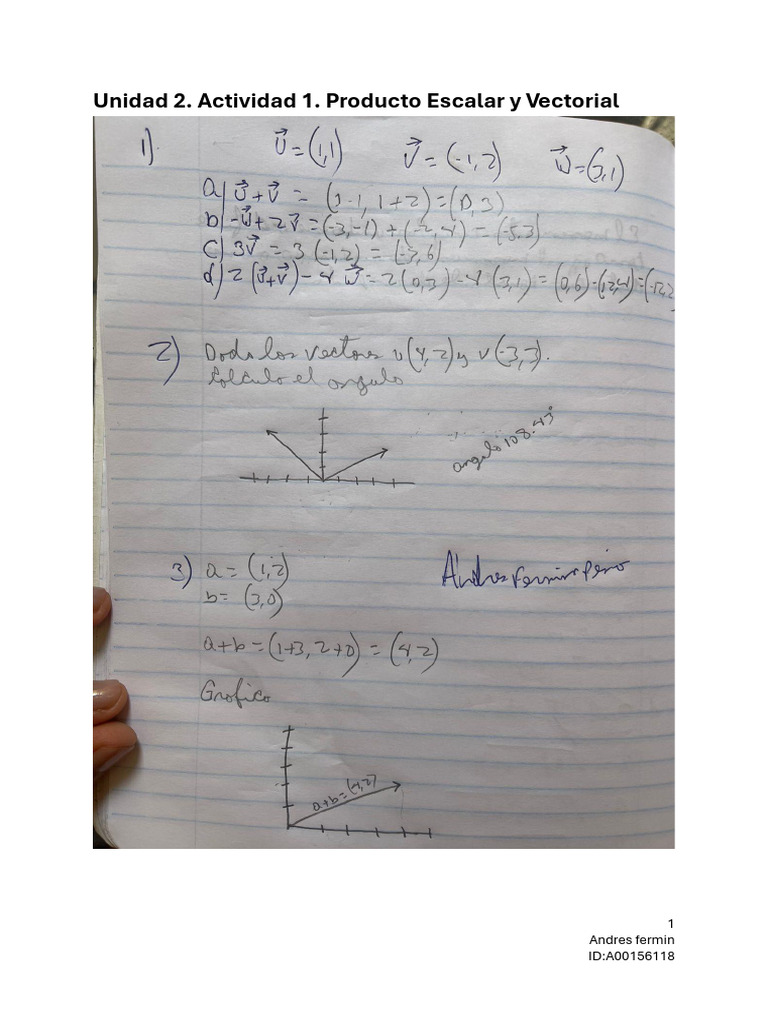 Unidad 2. Actividad 1. Producto Escalar y Vectorial
1) U⃗=(1,1) V⃗=(-1,2) W⃗=(3,1)
a) U⃗+V⃗ = (1-1, 1+2)=(0,3)
b) -W⃗+2V⃗=(-3,-1)+(-2,4)=(-5,3)
c) 3V⃗ = 3(-1,2)=(-3,6)
d) 2(U⃗+V⃗)-4W⃗=2(0,3)-4(3,1)=(0,6)-(12,4)=(-12,2
2) Dado los vectores u(4,2) y v(-3,3).
Calculo el angulo
angulo 108.43°
3) a= (1,2)
b= (3,0)
Andres Fermin
a+b=(1+3, 2+0)=(4,2)
Grafico
a+b=(4,2)
1
Andres fermin
ID:A00156118